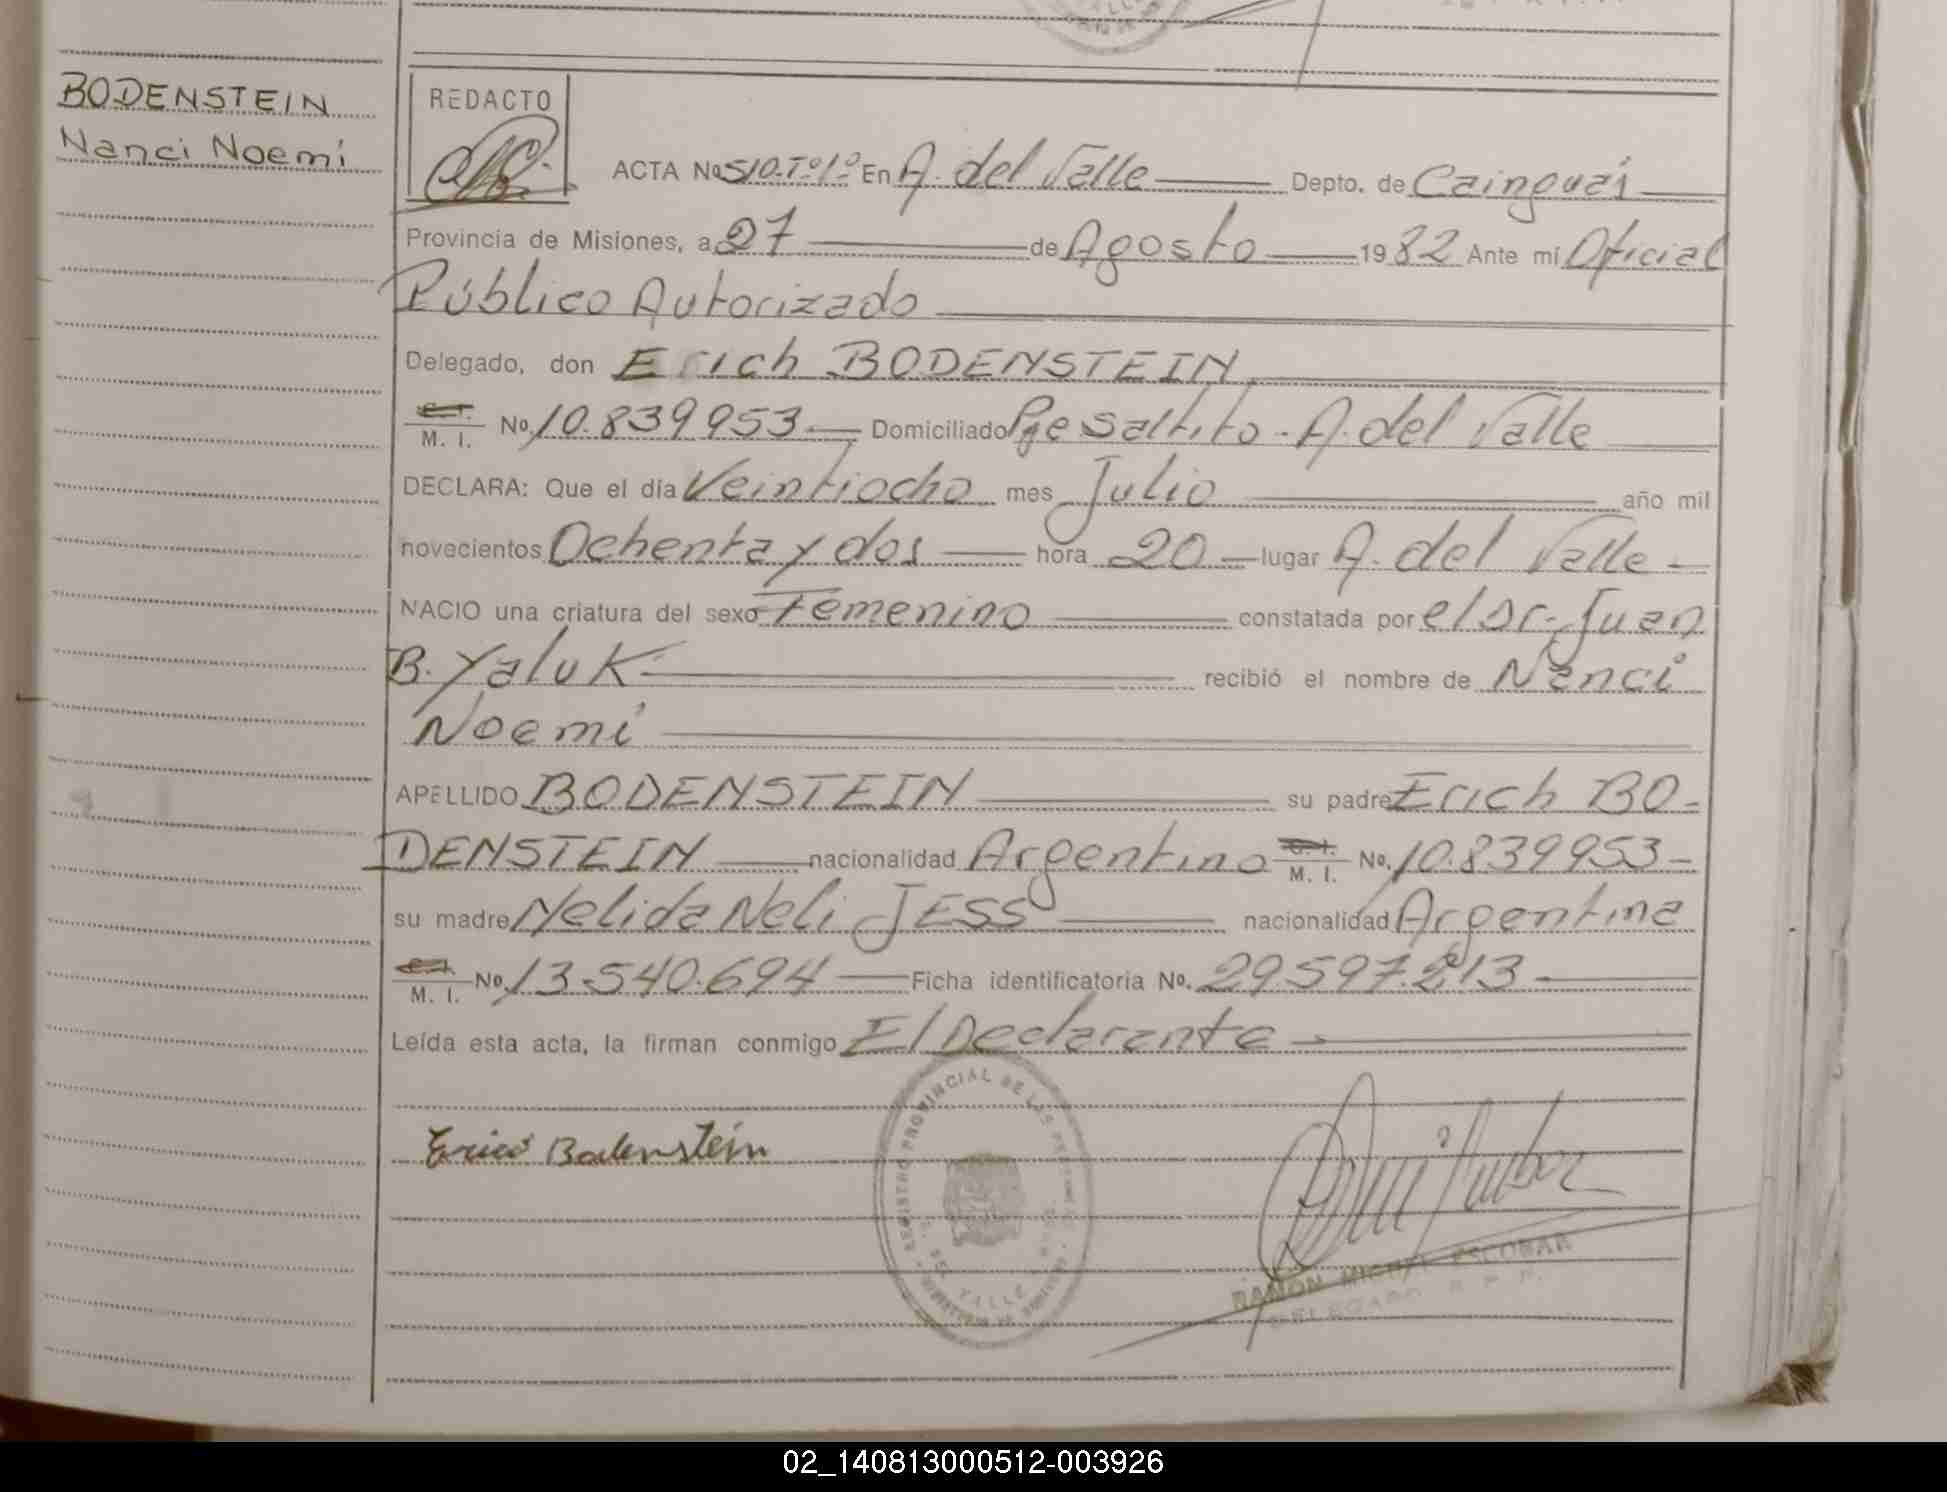 BODENSTEIN
Nanci Noemi
REDACTO
ACTA No 510.Tº1º En A. del Valle Depto. de Cainguás
Provincia de Misiones, a 27 de Agosto 1982 Ante mí Oficial
Público Autorizado
Delegado, don Erich BODENSTEIN
C. I. / M. I. No. 10.839953 Domiciliado Pje Saltito - A. del Valle
DECLARA: Que el día Veintiocho mes Julio año mil
novecientos Ochenta y dos hora 20 lugar A. del Valle
NACIO una criatura del sexo Femenino constatada por el Sr. Juan
B. Yaluk recibió el nombre de Nanci
Noemi
APELLIDO BODENSTEIN su padre Erich BO-
DENSTEIN nacionalidad Argentino C. I. / M. I. No. 10.839953
su madre Nelida Neli JESS nacionalidad Argentina
M. I. No. 13.540.694 Ficha identificatoria No. 29.597.213
Leída esta acta, la firman conmigo El Declarante
Erico Bodenstein
REGISTRO PROVINCIAL DE LAS PERSONAS
VALLE
RAMON MIGUEL ESCOBAR
DELEGADO R. P. P.
02_140813000512-003926